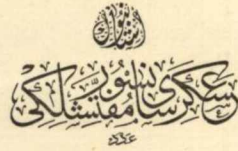 استانبول
عسكرى سانسور مفتشلكى
عدد